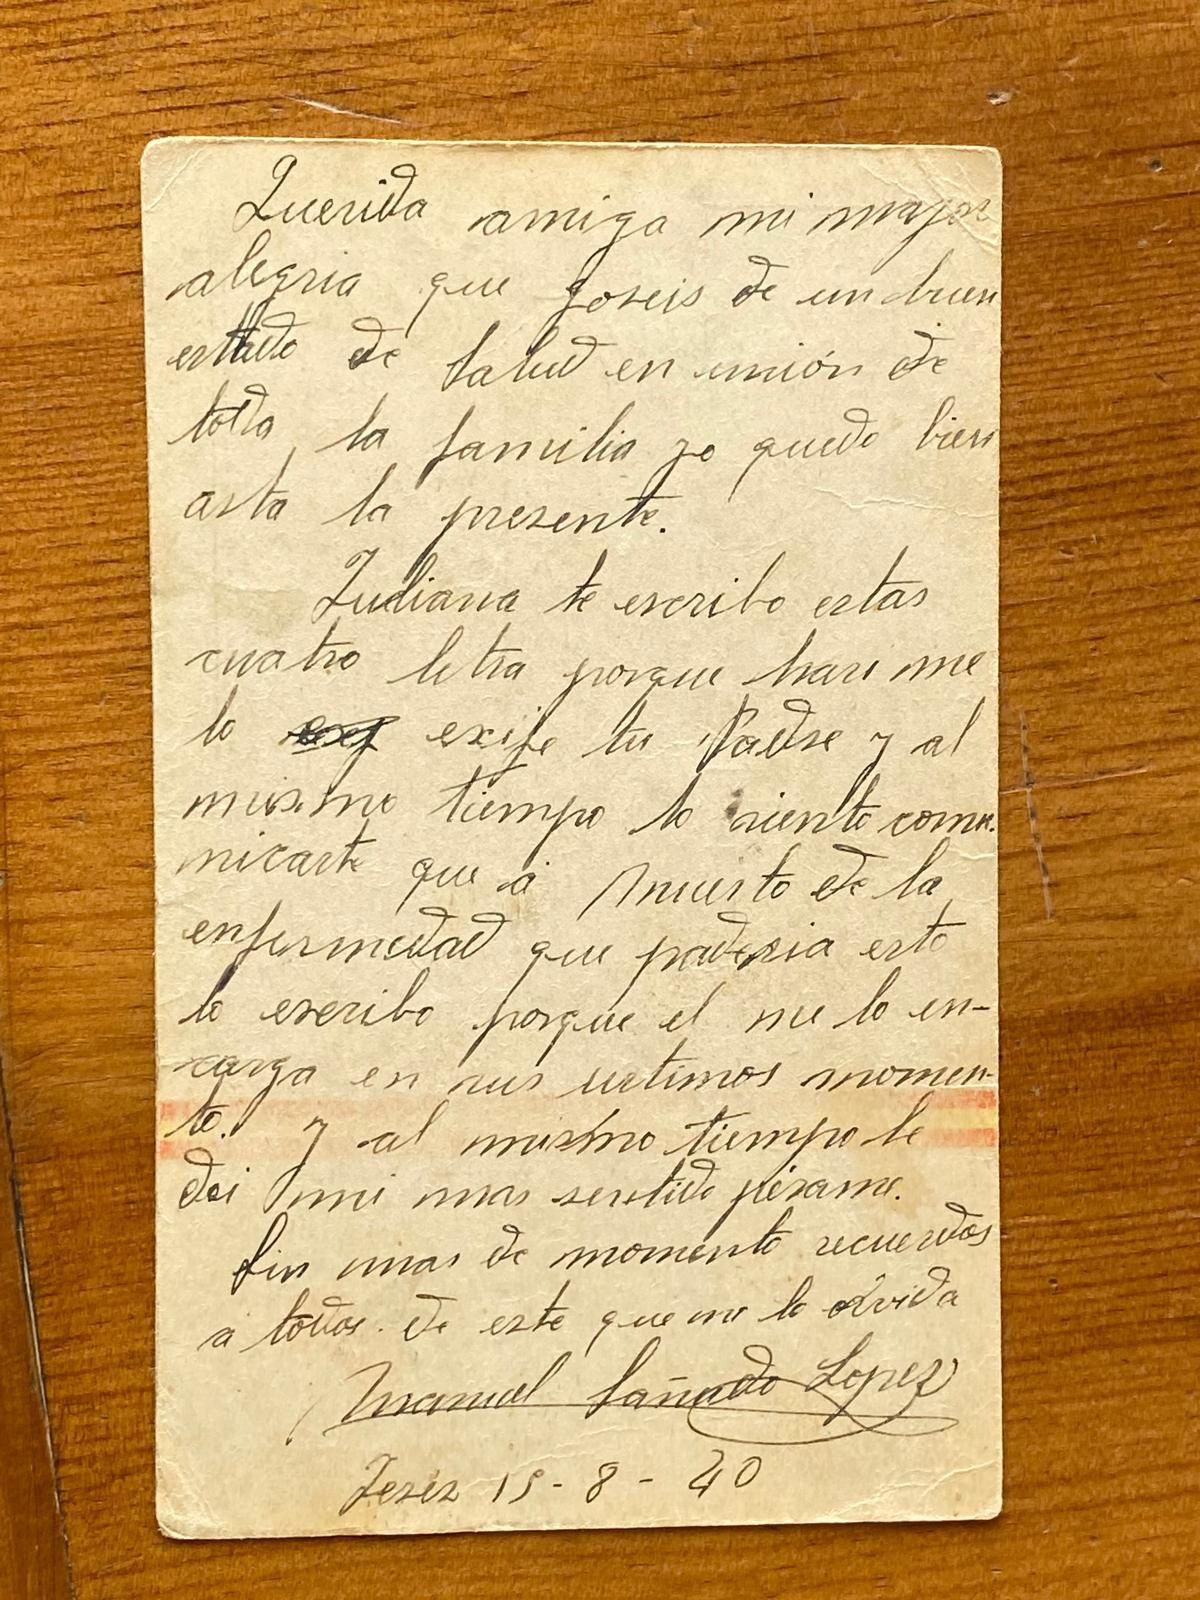 Querida amiga mi major
alegria que goseis de un buen
estado de salud en unión de
toda la familia yo quedo bien
asta la presente.
Juliana te escribo estas
cuatro letra porque hasi me
lo exije tu Padre y al
mismo tiempo lo siento comu-
nicarte que á muerto de la
enfermedad que padesia esto
lo escribo porque el me lo en-
carga en sus urtimos momen-
to. y al mismo tiempo le
doi mi mas sentido pésame.
Sin mas de momento recuerdos
a todos. de este que no lo olvida
Manuel Sañudo Lopez
Jerez 15-8-40